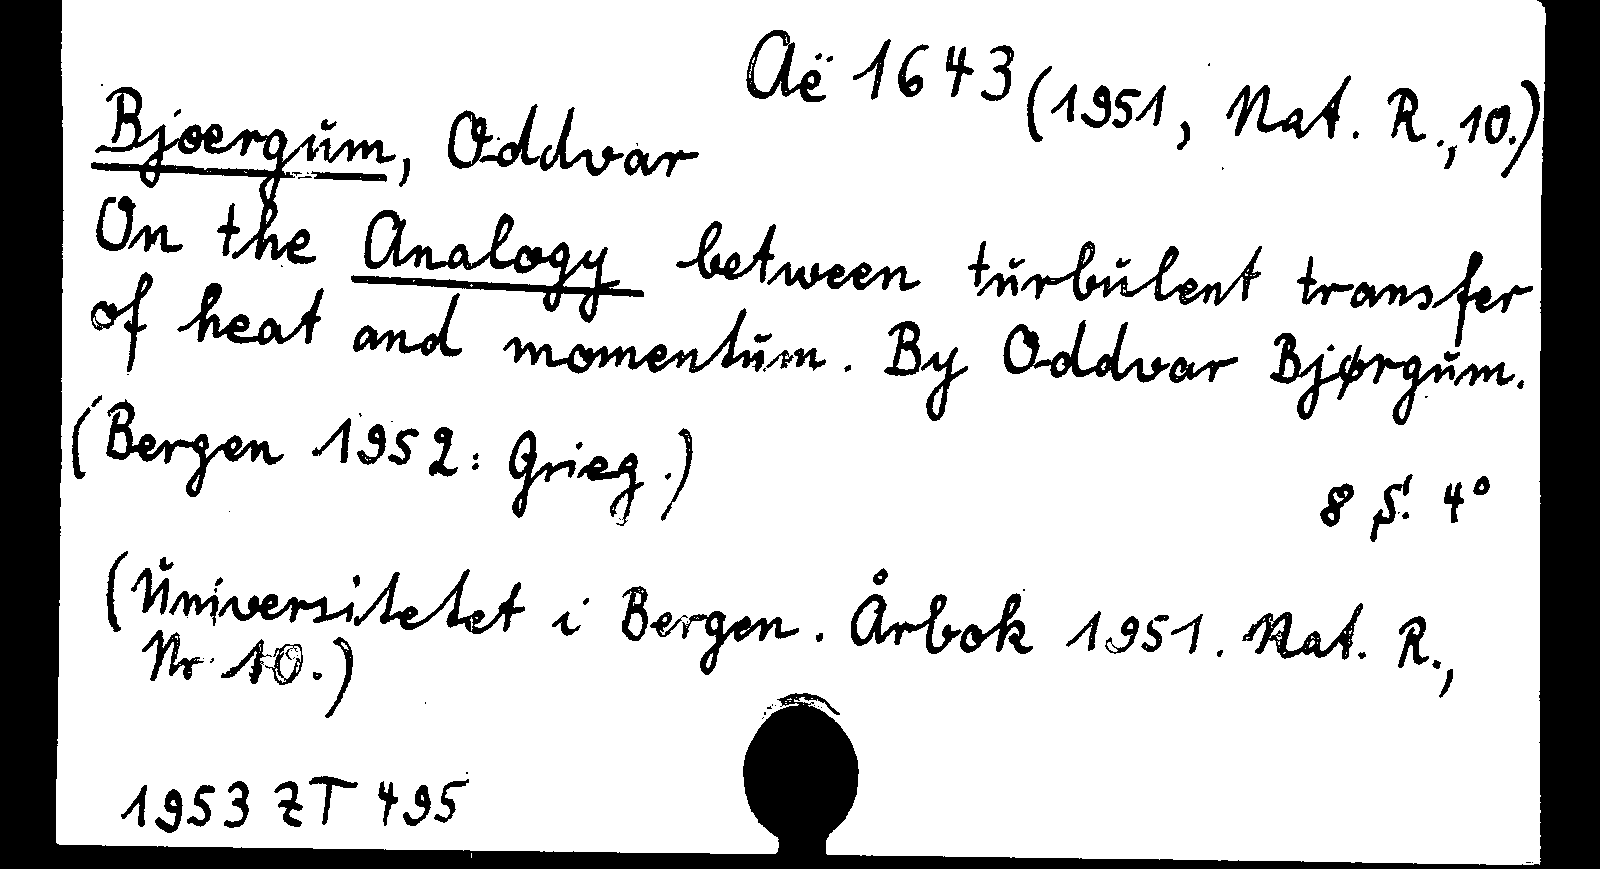 Aë 1643 (1951, Nat. R., 10.)
Bjoergum, Oddvar
On the Analogy between turbulent transfer
of heat and momentum. By Oddvar Bjørgum.
(Bergen 1952: Grieg.)
8 S. 4°
(Universitetet i Bergen. Årbok 1951. Nat. R.,
Nr 10.)
1953 ZT 495